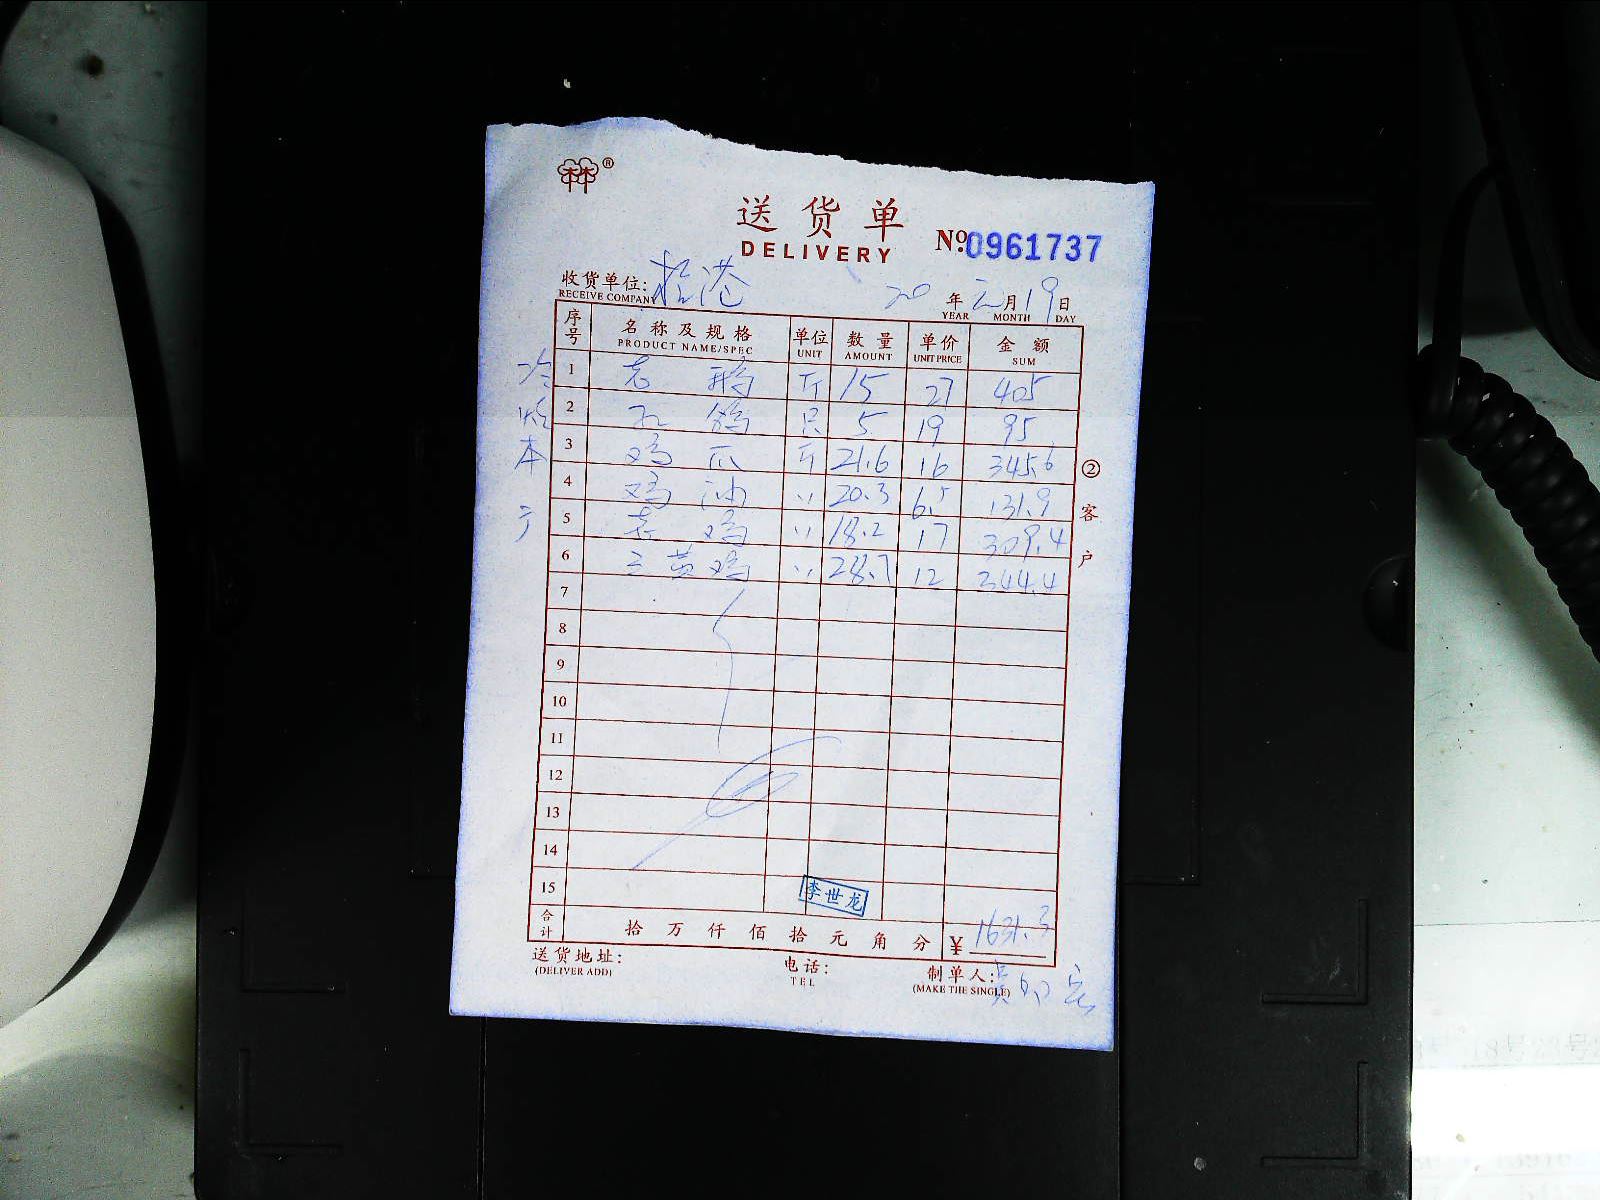 送货单
DELIVERY
No 0961737
收货单位: 松港
RECEIVE COMPANY
20 年 二 月 19 日
YEAR MONTH DAY
序号 名称及规格 单位 数量 单价 金额
PRODUCT NAME/SPEC UNIT AMOUNT UNIT PRICE SUM
1 老鸭 斤 15 27 405
2 乳鸽 只 5 19 95
3 鸡爪 斤 21.6 16 345.6
4 鸡油 〃 20.3 6.5 131.9
5 老鸡 〃 18.2 17 309.4
6 三黄鸡 〃 28.7 12 344.4
7
8
9
10
11
12
13
14
15
李世龙
合计 拾 万 仟 佰 拾 元 角 分 ¥ 1631.3
送货地址: 电话: 制单人:
(DELIVER ADD) TEL (MAKE THE SINGLE)
② 客户